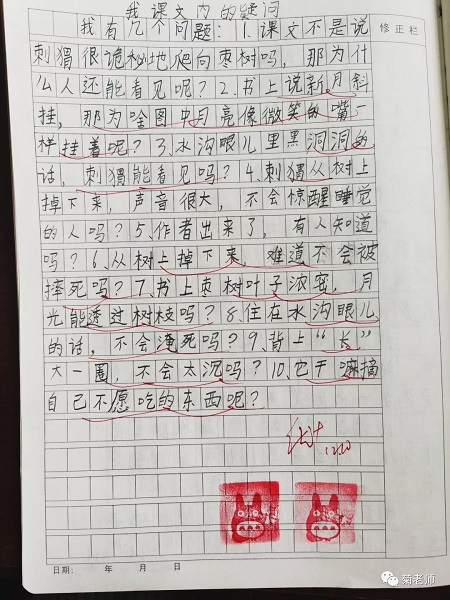 我课文内的疑问
修正栏
我有几个问题：1.课文不是说
刺猬很诡秘地爬向枣树吗，那为什
么人还能看见呢？2.书上说新月斜
挂，那为啥图中月亮像微笑的嘴一
样挂着呢？3.水沟眼儿里黑洞洞的
话，刺猬能看见吗？4.刺猬从树上
掉下来，声音很大，不会惊醒睡觉
的人吗？5.作者出来了，有人知道
吗？6.从树上掉下来，难道不会被
摔死吗？7.书上枣树叶子浓密，月
光能透过树枝吗？8.住在水沟眼儿
的话，不会淹死吗？9.背上“长”
大一圈，不会太沉吗？10.它干嘛摘
自己不愿吃的东西呢？
12.10
日期： 年 月 日
菊老师